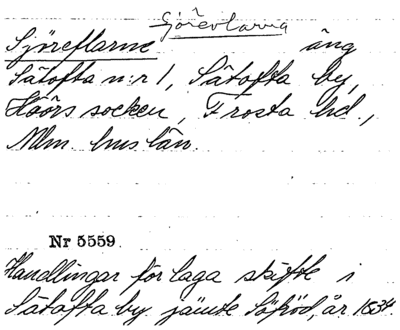 Sjörevlarna
Sjöreflarne äng
Sätofta n:r 1, Sätofta by,
Höörs socken, Frosta hd.,
Mlm. hus län.
Nr 5559.
Handlingar för laga skifte i
Sätofta by jämte år